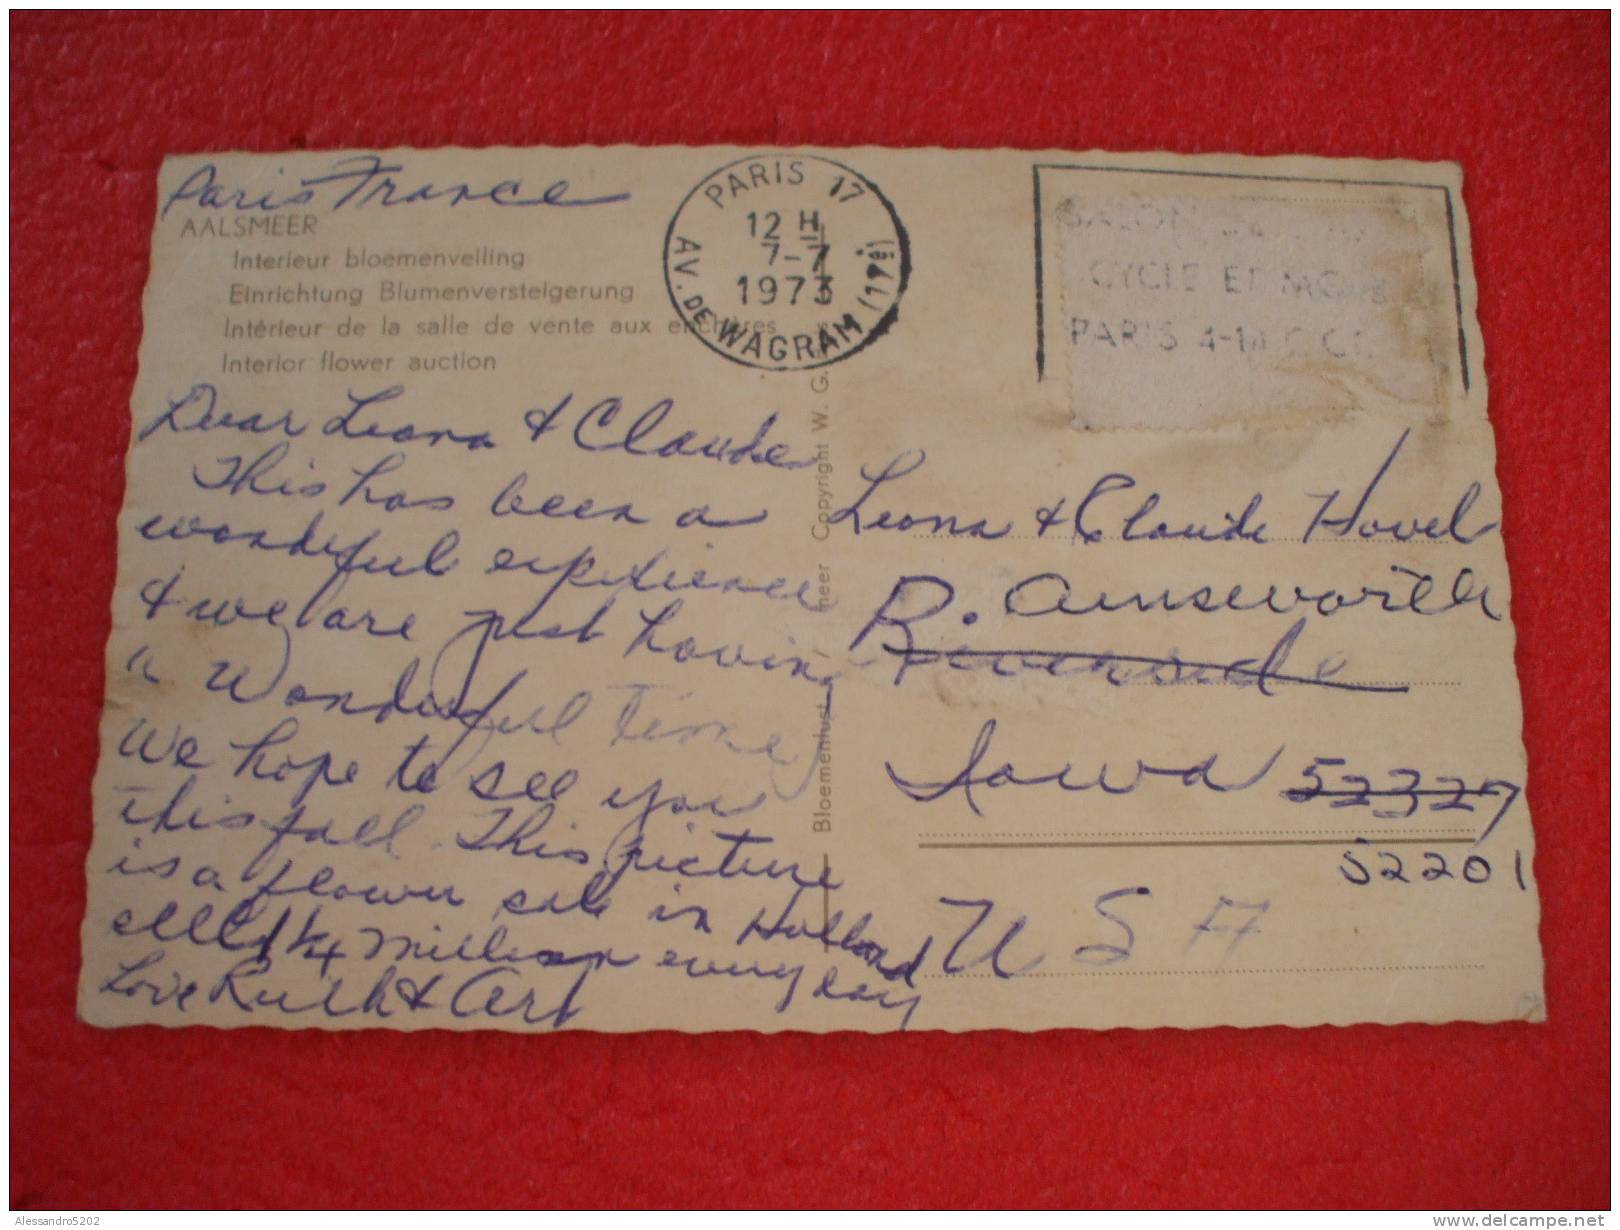 Paris France
AALSMEER
Interieur bloemenveiling
Einrichtung Blumenversteigerung
Intérieur de la salle de vente aux enchères
Interior flower auction
PARIS 17
12 H
7-7
1973
AV. DE WAGRAM (17e)
CYCLE ET MO
PARIS 4-14 OC
Dear Leona & Claude
This has been a
wonderful experience
& we are just having
a Wonderful time
We hope to see you
this fall. This picture
is a flower sale in Holland
sells 1 1/4 Million every day
Love Ruth & Art
Bloemenlust meer Copyright W. G.
Leona & Claude Hovel
R. Ainsworth
Riverside
Iowa 52327
52201
U S A
Alessandro5202
www.delcampe.net